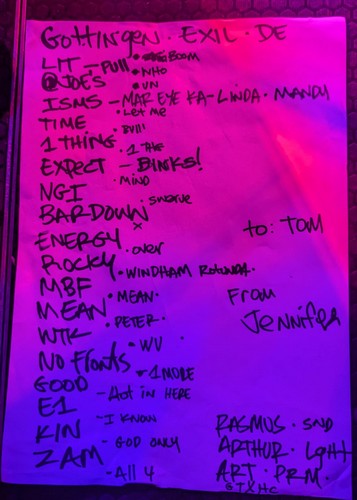 GOTTINGEN · EXIL · DE
LIT - PUll · BOOM
@JOE'S · NHO
· VN
ISMS - MAR EYE KA - LINDA · MANDY
TIME · Let me
1 THING · BVll'
EXPECT · 1 THE - BINKS!
NGI · MIND
BARDOWN · swerve
ENERGY
to: TOM
ROCKY · over
MBF · WINDHAM ROTUNDA.
MEAN · MEAN ·
From
Jennifer
WTK · PETER ·
NO FRONTS · WV
GOOD · 1 MORE
E1 - Hot in HERE
KIN - I KNOW
ZAM - GOD ONLY
- All 4
RASMUS · SND
ARTHUR · LgHt
ART · PRM ·
STXHC